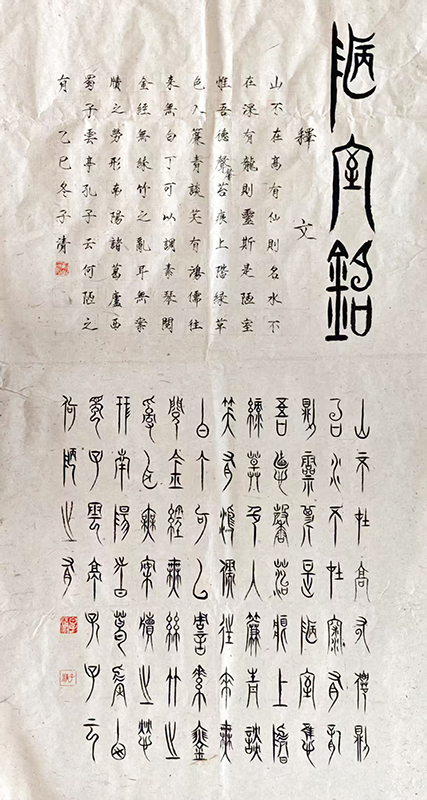 陋室銘
釋文
山不在高有仙則名水不
在深有龍則靈斯是陋室
惟吾德馨苔痕上階綠草
色入簾青談笑有鴻儒往
來無白丁可以調素琴閱
金經無絲竹之亂耳無案
牘之勞形南陽諸葛廬西
蜀子雲亭孔子云何陋之
有 乙巳冬子清
山不在高有僊則
名水不在深有龍
則靈斯是陋室惟
吾德馨苔痕上階
綠草色入簾青談
笑有鴻儒往來無
白丁可以調素琴
閱金經無絲竹之
亂耳無案牘之勞
形南陽諸葛廬西
蜀子雲亭孔子云
何陋之有